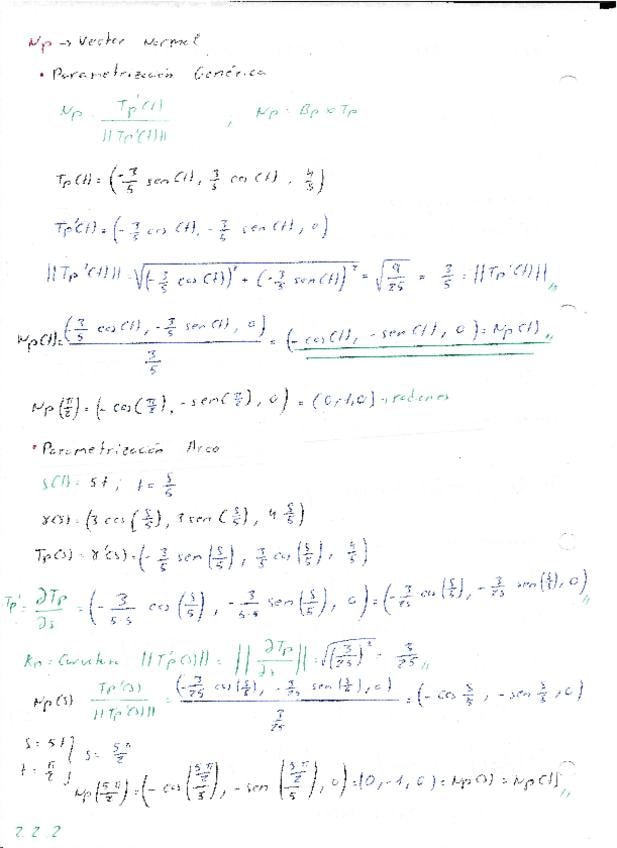 Np → Vector Normal
• Parametrización Genérica
Np = Tp'(t) / ||Tp'(t)|| , Np = Bp x Tp
Tp(t) = (-3/5 sen(t), 3/5 cos(t), 4/5)
Tp'(t) = (-3/5 cos(t), -3/5 sen(t), 0)
||Tp'(t)|| = √((-3/5 cos(t))² + (-3/5 sen(t))²) = √(9/25) = 3/5 = ||Tp'(t)||,,
Np(t) = (3/5 cos(t), -3/5 sen(t), 0) / (3/5) = (-cos(t), -sen(t), 0) = Np(t),,
Np(π/2) = (-cos(π/2), -sen(π/2), 0) = (0,-1,0) → radianes
• Parametrización Arco
s(t) = 5t ; t = s/5
γ(s) = (3 cos(s/5), 3 sen(s/5), 4 s/5)
Tp(s) = γ'(s) = (-3/5 sen(s/5), 3/5 cos(s/5), 4/5)
Tp' = ∂Tp/∂s = (-3/(5·5) cos(s/5), -3/(5·5) sen(s/5), 0) = (-3/25 cos(s/5), -3/25 sen(s/5), 0),,
Kp = Curvatura ||Tp'(s)|| = ||∂Tp/∂s|| = √((3/25)²) = 3/25,,
Np(s) Tp'(s) / ||Tp'(s)|| = (-3/25 cos(s/5), -3/25 sen(s/5), 0) / (3/25) = (-cos s/5, -sen s/5, 0)
s = 5t
t = π/2 } s = 5π/2
Np(5π/2) = (-cos((5π/2)/5), -sen((5π/2)/5), 0) = (0, -1, 0) = Np(s) = Np(t),,
2.2.2